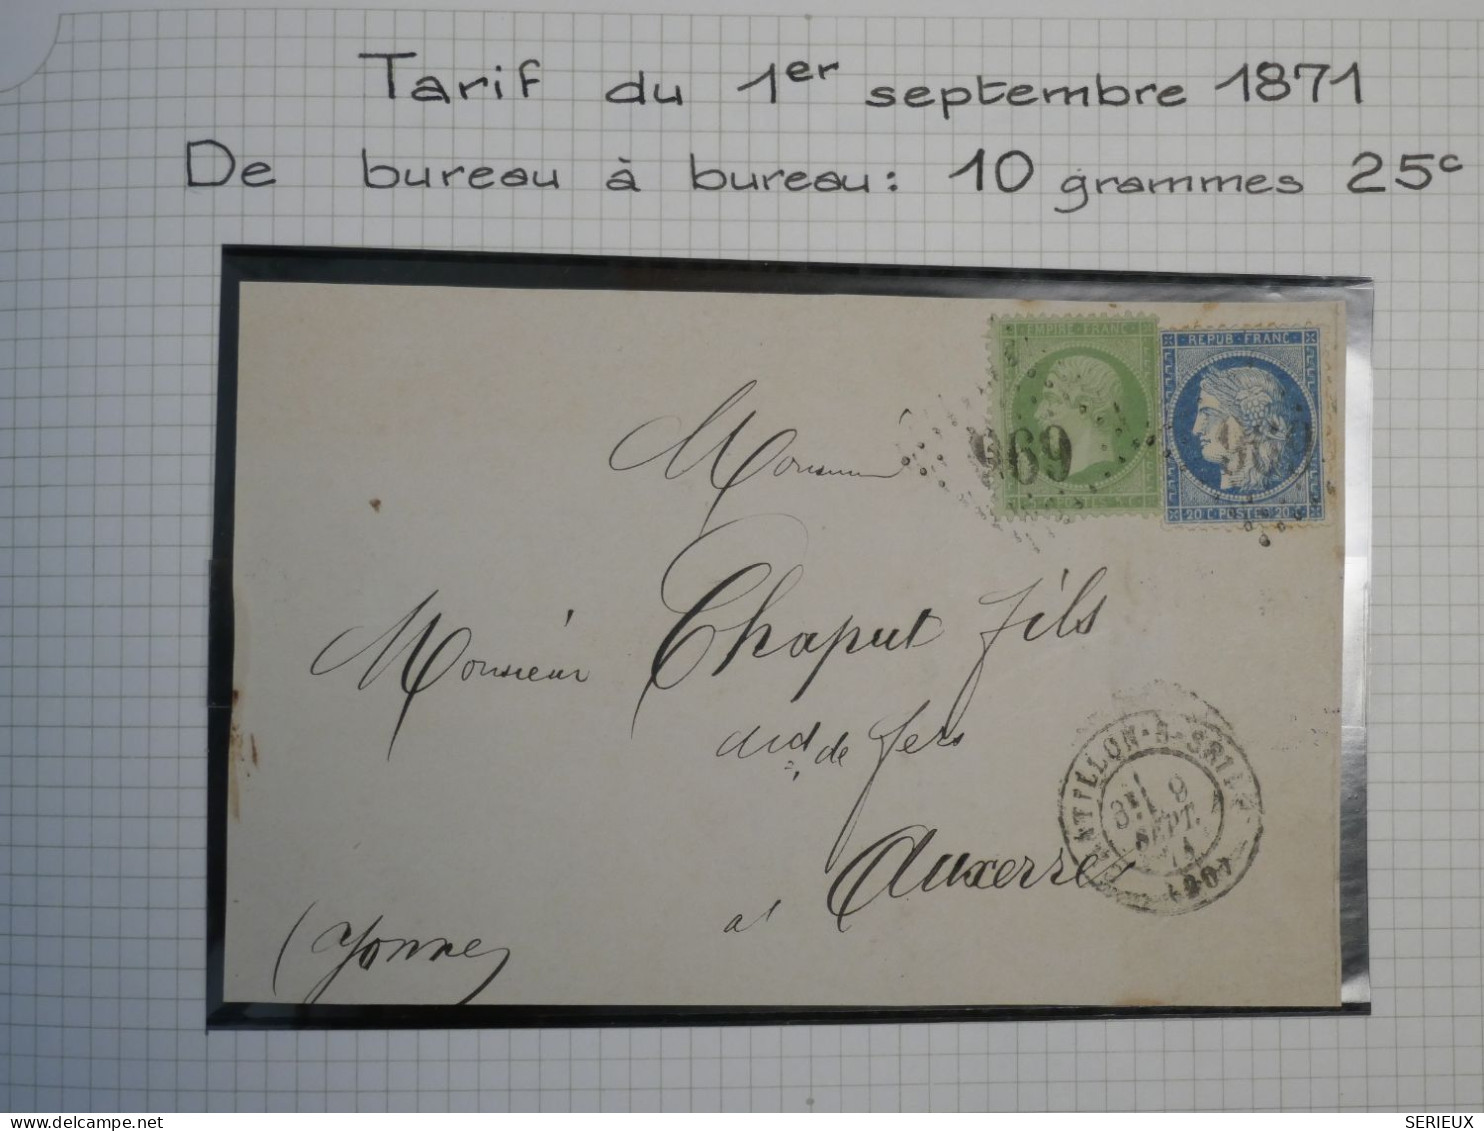 Tarif du 1er septembre 1871
De bureau à bureau : 10 grammes 25c
EMPIRE FRANC
REPUB FRANC
969
20 C POSTES 20 C
Monsieur
Monsieur Chaput fils
md de fers
CHATILLON-S-SEINE
9
SEPT.
71
(20)
à Auxerre
(Yonne)
delcampe.net
SERIEUX